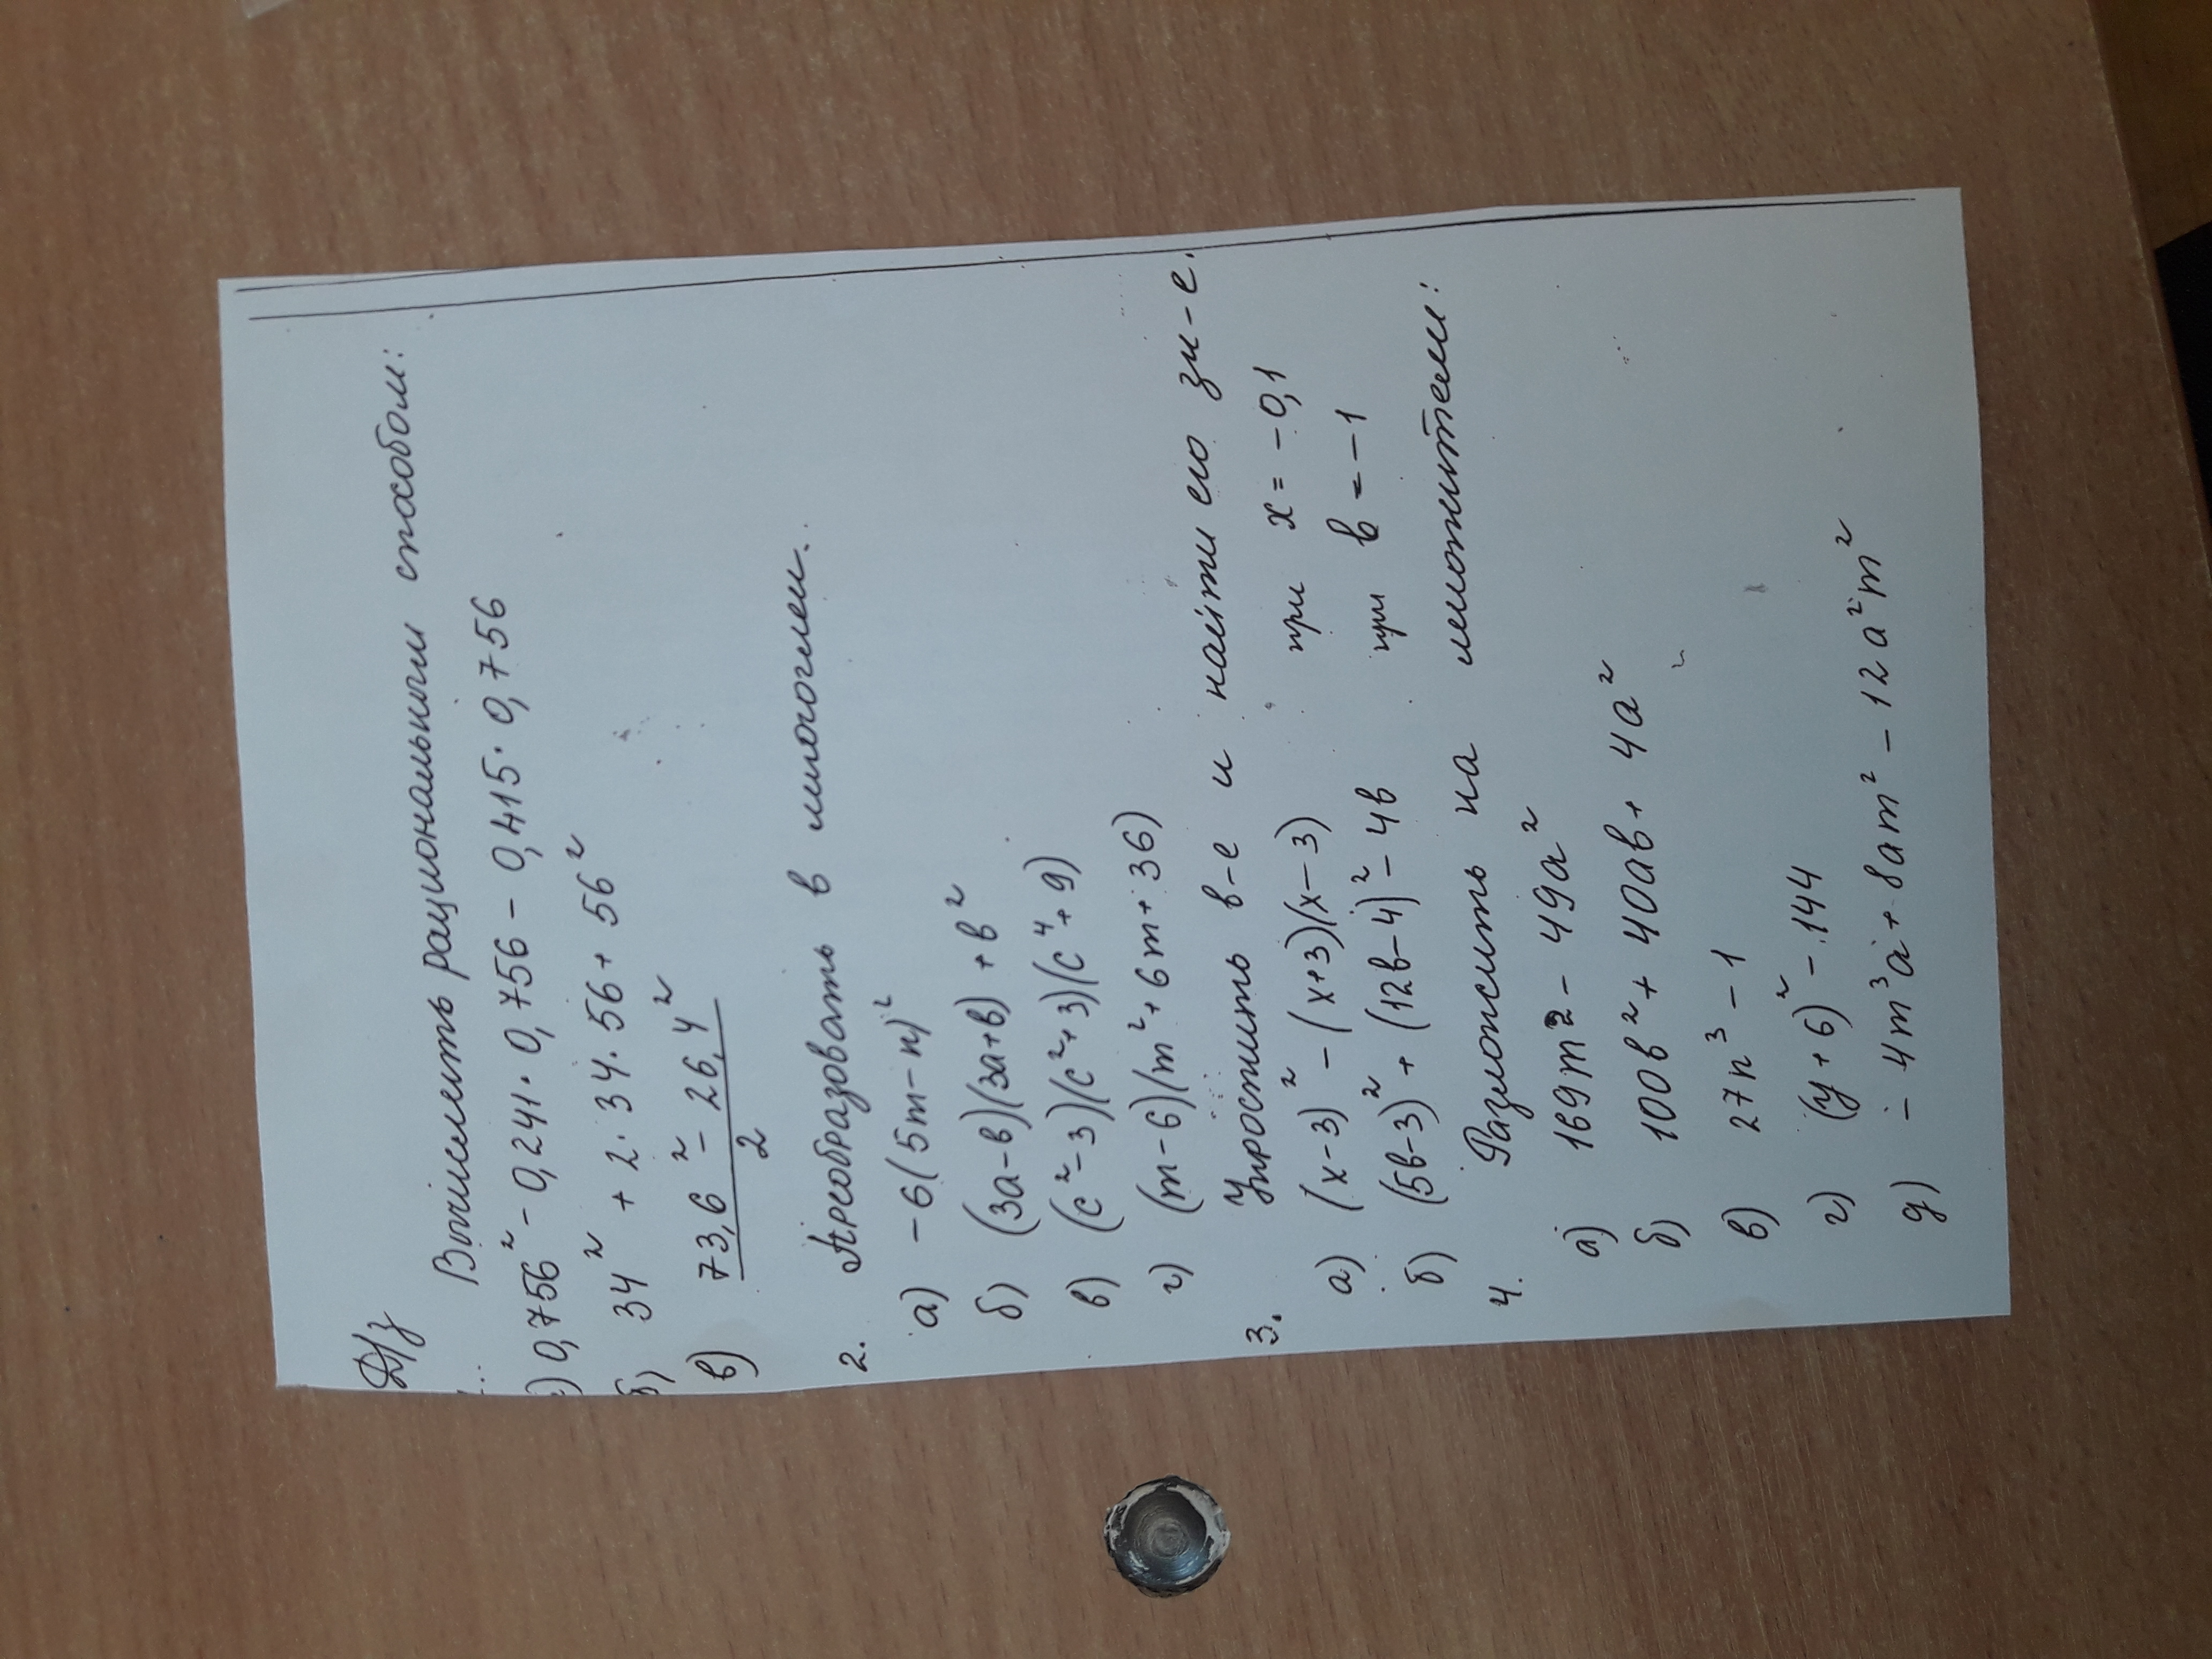 Д/з
Вычислить рациональным способом:
) 0,756² - 0,241·0,756 - 0,415·0,756
б) 34² + 2·34·56 + 56²
в) 73,6² - 26,4²
2
2. Преобразовать в многочлен.
а) -6(5m-n)²
б) (3а-в)(3а+в) + в²
в) (с²-3)(с²+3)(с⁴+9)
г) (m-6)(m²+6m+36)
3. Упростить в-е и найти его зн-е.
а) (х-3)² - (х+3)(х-3) при х = -0,1
б) (5в-3)² + (12в-4)² - 4в при в = -1
4. Разложить на множители:
а) 169m² - 49a²
б) 100в² + 40ав + 4а²
в) 27n³ - 1
г) (у+6)² - 144
д) -4m³a + 8am² - 12a²m²